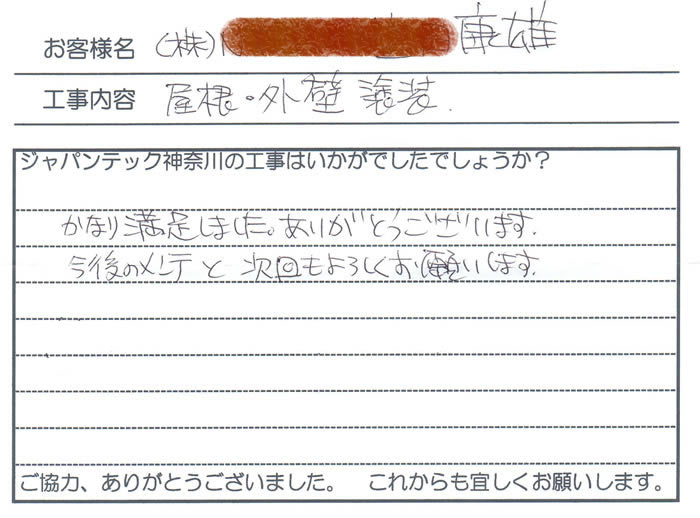 お客様名 (株)N 康雄
工事内容 屋根・外壁 塗装.
ジャパンテック神奈川の工事はいかがでしたでしょうか？
かなり満足しました。ありがとうございます.
今後のメンテと次回もよろしくお願いします.
ご協力、ありがとうございました。 これからも宜しくお願いします。